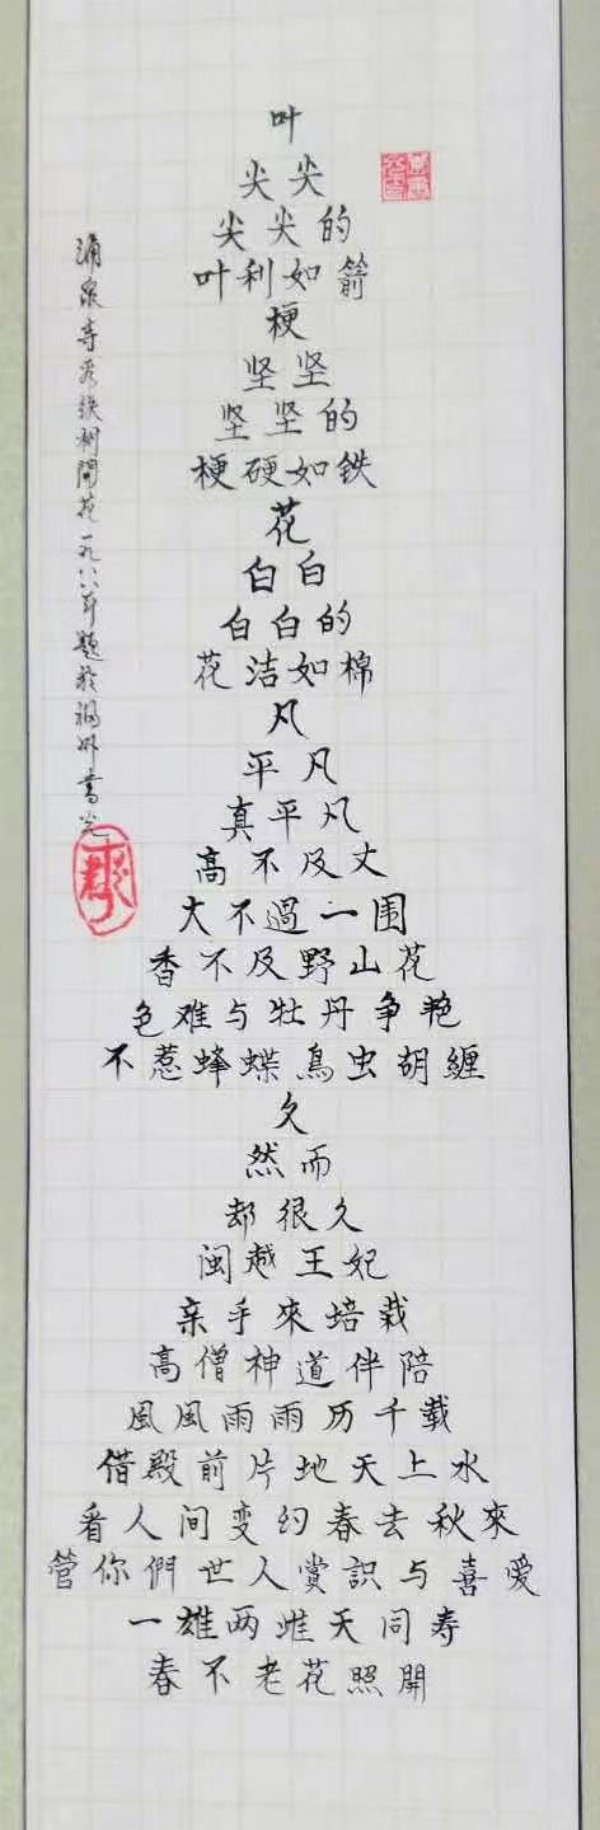 叶
尖尖
尖尖的
叶利如箭
梗
坚坚
坚坚的
梗硬如鉄
花
白白
白白的
花洁如棉
凡
平凡
真平凡
高不及丈
大不過一围
香不及野山花
色难与牡丹争艳
不惹蜂蝶鳥虫胡纏
久
然而
却很久
闽越王妃
亲手來培栽
高僧神道伴陪
風風雨雨历千載
借殿前片地天上水
看人间变幻春去秋來
管你們世人賞識与喜爱
一雄两雌天同寿
春不老花照開
涌泉寺看鉄树開花一九八八年題於福州